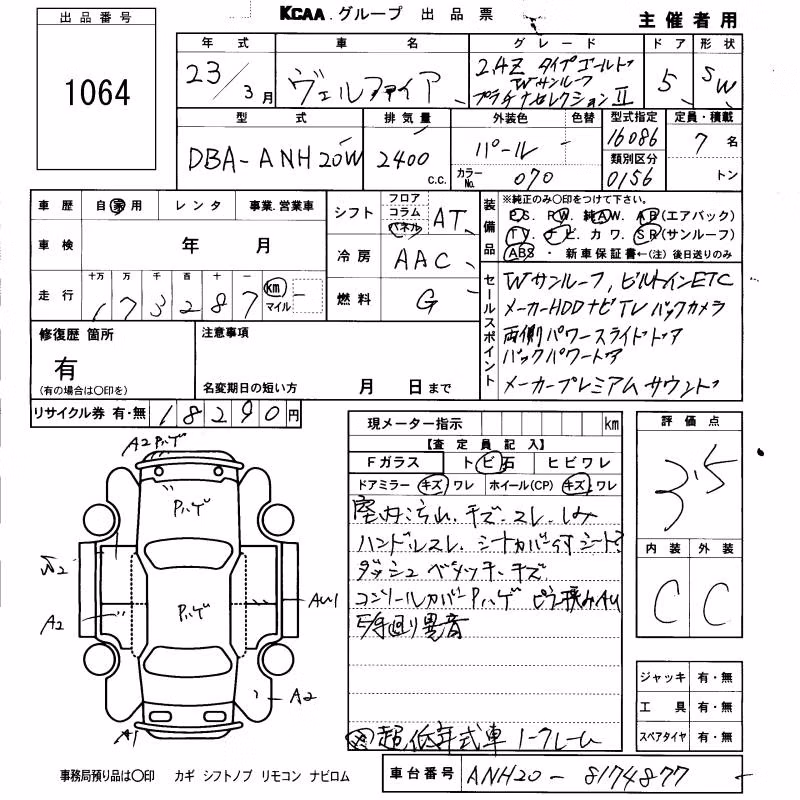 KCAA.グループ 出品票
主催者用
出品番号
1064
年式 車名 グレード ドア 形状
23/3月 ヴェルファイア 2.4Z タイプゴールド Wサンルーフ プラチナセレクションⅡ 5 SW
型式 排気量 外装色 色替 型式指定 定員・積載
DBA-ANH20W 2400 c.c. パール - 16086 7名
カラーNo. 070 類別区分 0156 トン
車歴 自家用 レンタ 事業.営業車
車検 年 月
走行 十万 万 千 百 十 一 km マイル
173287 -
シフト フロア コラム パネル AT
冷房 AAC
燃料 G
装備品 ※純正のみ〇印をつけて下さい。
P.S. P.W. 純A.W. A.B(エアバック)
T.V. ナビ. カワ. S.R(サンルーフ)
ABS ・ 新車保証書←(注)後日送りのみ
セールスポイント
Wサンルーフ, ビルトインETC
メーカーHDDナビTV バックカメラ
両側パワースライドドア
バックパワードア
メーカープレミアムサウンド
修復歴 箇所
有
(有の場合は〇印を)
注意事項
名変期日の短い方 月 日まで
リサイクル券 有・無 18290円
現メーター指示 km
【査定員記入】
Fガラス トビ石 ヒビワレ
ドアミラー キズ ワレ ホイール(CP) キズ ワレ
室内汚れ. キズ. スレ. しみ
ハンドルスレ. シートカバー付 シート?
ダッシュ ベタツキ. キズ.
コンソールカバーPハゲ
異音
超低年式車 ノークレーム
評価点
3.5
内装 外装
C C
ジャッキ 有・無
工具 有・無
スペアタイヤ 有・無
A2 Pハゲ
Pハゲ
Pハゲ
W2
A2
AU1
A2
A1
事務局預り品は〇印 カギ シフトノブ リモコン ナビロム
車台番号 ANH20-8174877